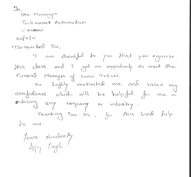 To,
The Manager
Technocrat Automation
Chennai
Respected Sir,
I am thankful to you that you organise
this class and I got an opportunity to meet the
General Manager of
He highly motivated me and raise my
confidence which will be helpful for me in
entering any company or industry.
Thanking you Sir, for this kind help
to me.
Yours obediently